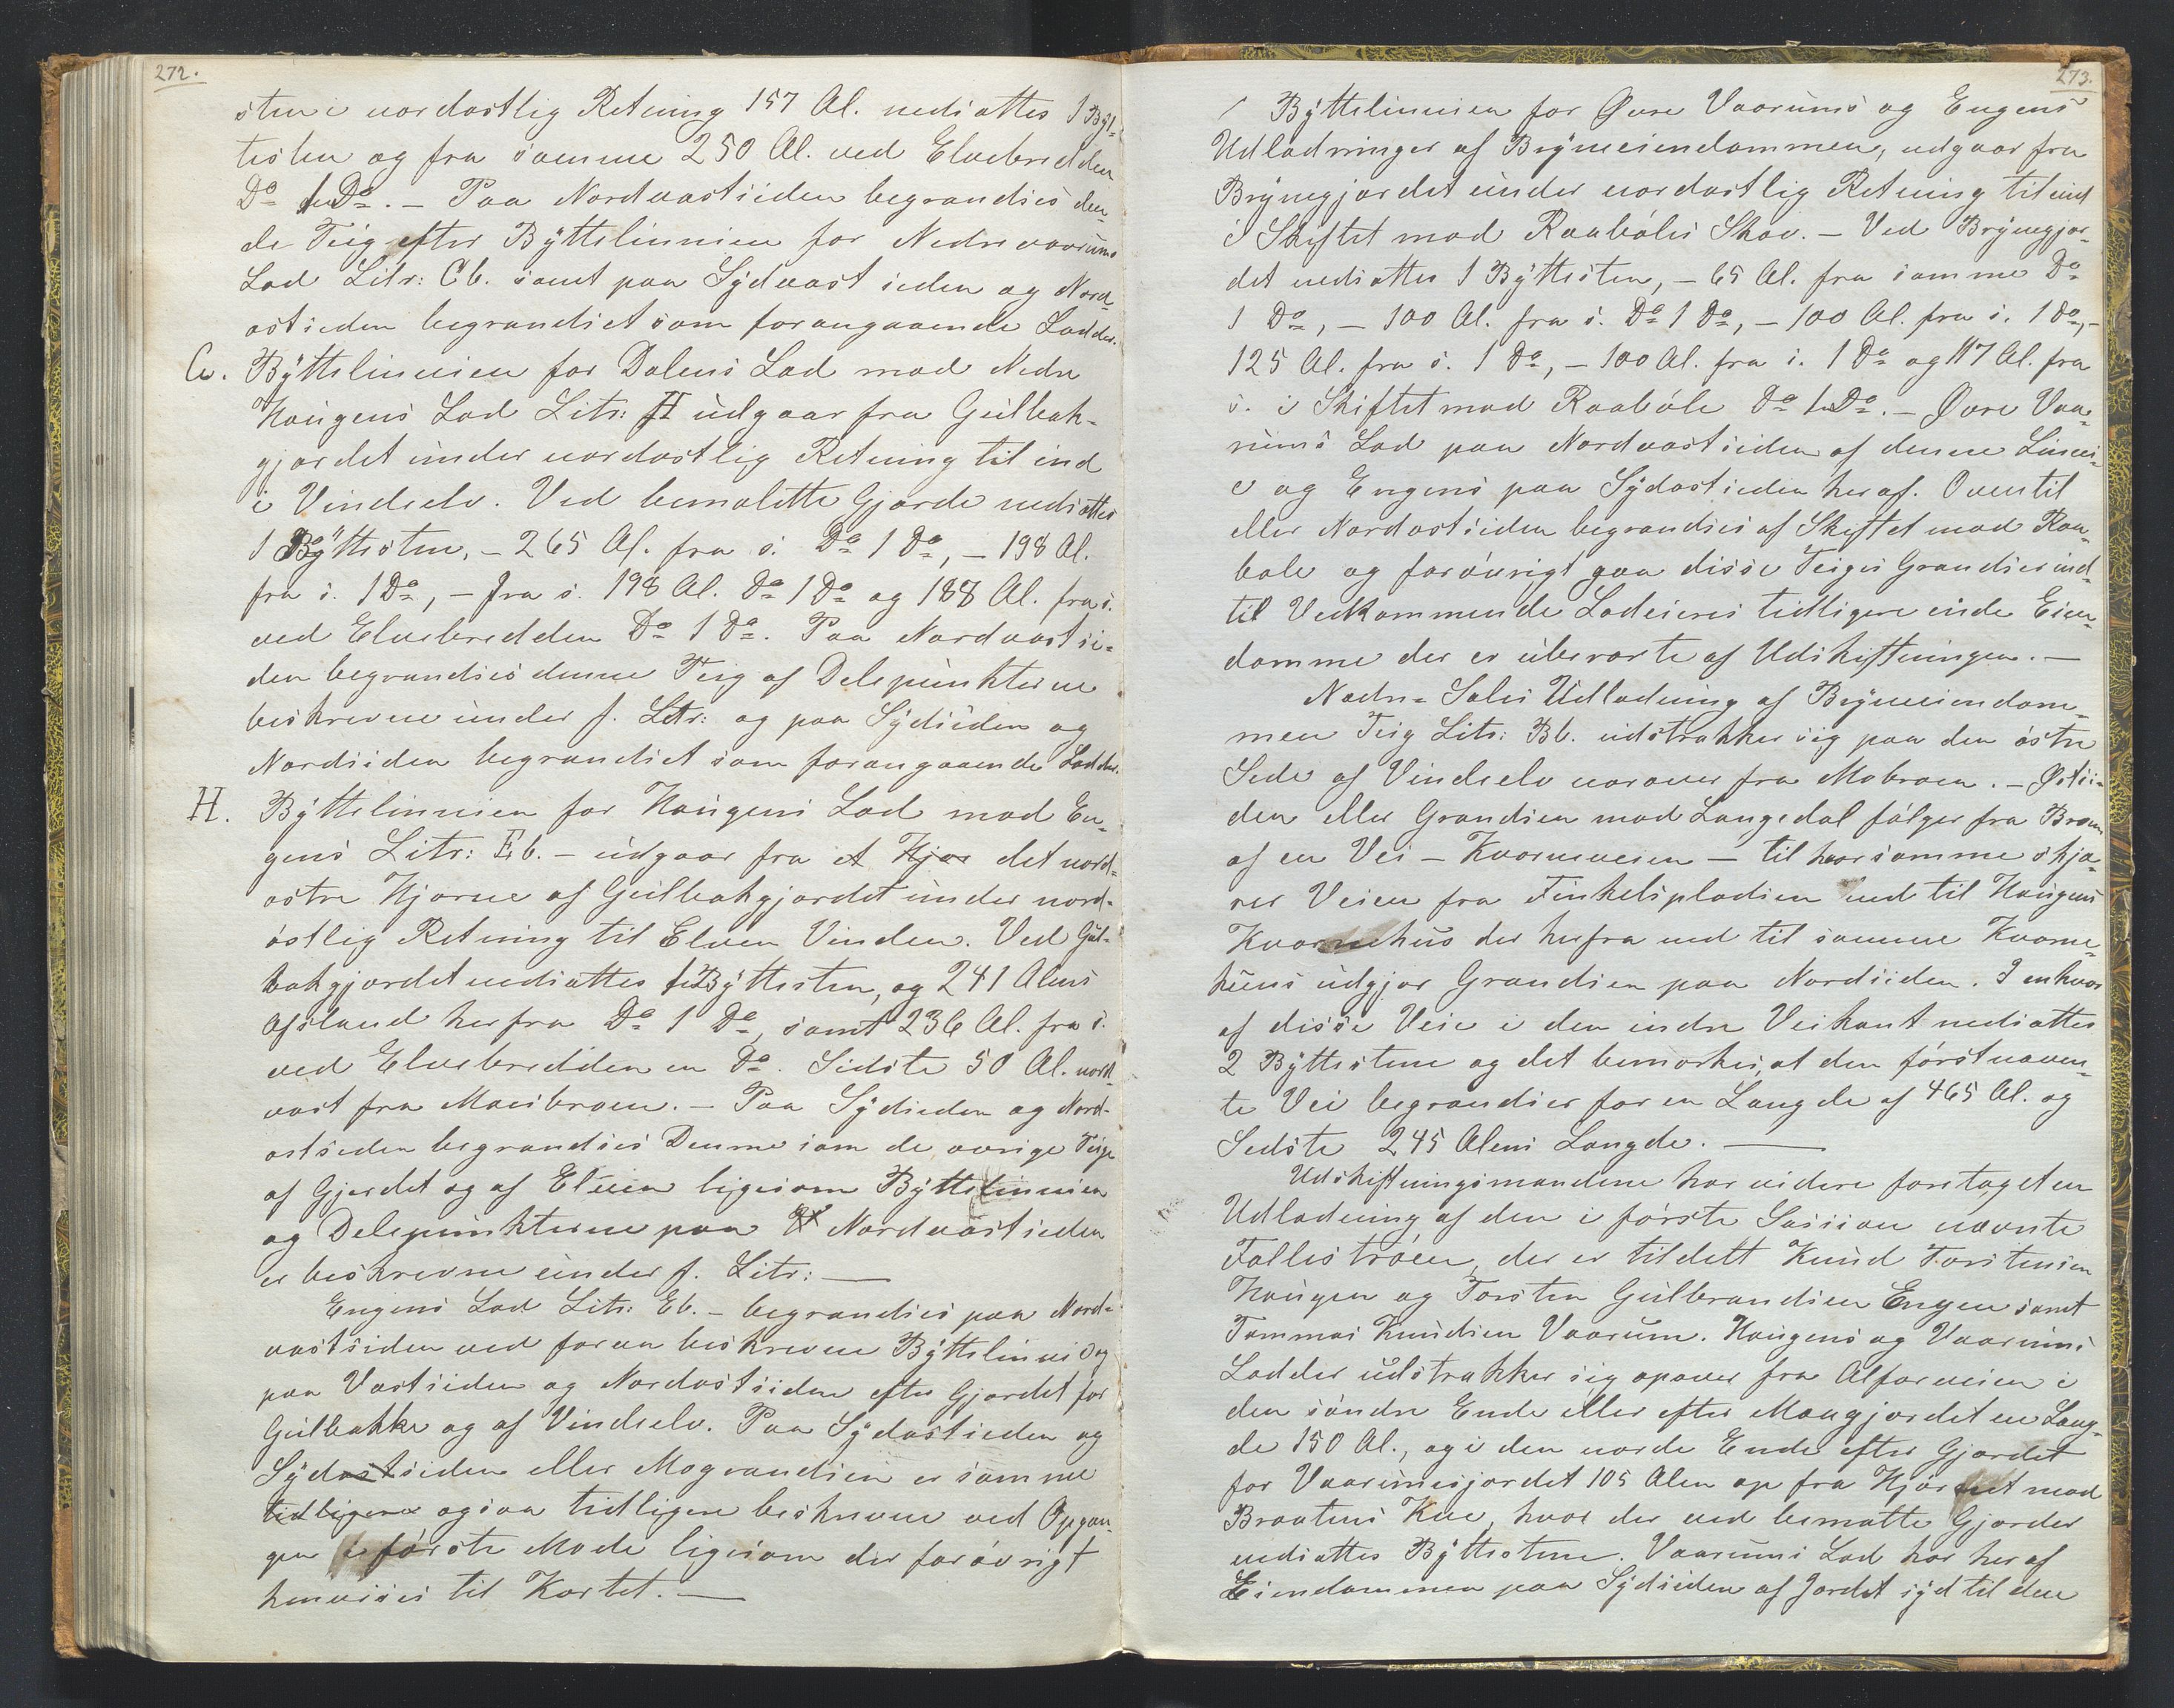 272.
sten i nordostlig Retning 157 Al. nedsattes 1 Byt-
testen og fra samme 250 Al. ved Elvebredden
Do 1 Do. – Paa Nordvestsiden begrændses den-
de Teig efter Byttelinnien for Nedre vaarums
Lod Litr: Cb. samt paa Sydvest siden og Nord-
ostsieden begrændset som forangaaende Lodder.
G. Byttelinnien for Dalens Lod mod Nedre
Haugens Lod Litr: H udgaar fra Gulbak-
gjærdet under nordostlig Retning til ind
i Vindselv. Ved bemældte Gjærde nedsattes
1 Byttesten, – 265 Al. fra s. Do 1 Do, – 198 Al.
fra s. 1 Do, – fra s. 198 Al. Do 1 Do og 188 Al. fra s.
ved Elvebredden Do 1 Do. Paa Nordvestsi-
den begrændses denne Teig af Delepunkterne
beskrevne under f. Litr: og paa Sydsiden og
Nordsiden begrændset som forangaaende Lodder.
H. Byttelinnien for Haugens Lod mod En-
gens Litr: Eb. – udgaar fra et Hjør det nord-
ostre Hjørne af Gulbakgjærdet under nord-
østlig Retning til Elven Vinden. Ved Gul-
bakgjærdet nedsattes 1 Byttesten, og 241 Alens
Afstand herfra Do 1 Do, samt 236 Al. fra s.
ved Elvebredden en Do. Sidste 50 Al. nord-
vest fra Moesbroen. – Paa Sydsiden og Nord-
ostsiden begrændses Denne som de øvrige Teige
af Gjerdet og af Elven ligesom Byttelinnien
og Delepunkterne paa Nordvestsieden
er beskrevne under f. Litr: —
Engens Lod Litr: Eb. – begrændses paa Nord-
vestsiden ved foran beskrevne Byttelinni og
paa Vestsiden og Nordostsiden efter Gjærdet for
Gulbakke og af Vindselv. Paa Sydostsieden og
Sydostsiden eller Mogrændsen er samme
tidligere ogsaa tidligere beskrevne ved Opgan-
gen i første Møde ligesom der forøvrigt
henvises til Kartet. —
273.
Byttelinnien for Øvre Vaarums og Engens
Udlodninger af Bryneeiendommen, udgaar fra
Brynegjærdet under nordostlig Retning til ind
i Skiftet mod Raabøles Skov. – Ved Brynegjær-
det nedsattes 1 Byttesten, – 65 Al. fra samme Do
1 Do, – 100 Al. fra s. Do 1 Do, – 100 Al. fra s. 1 Do, –
125 Al. fra s. 1 Do, – 100 Al. fra s. 1 Do og 117 Al. fra
s. i Skiftet mod Raabøle Do 1 Do. – Øvre Vaa-
rums Lod paa Nordvestsiden af denne Linni-
e og Engens paa Sydostsieden heraf. Oventil
eller Nordostsiden begrændses af Skiftet mod Raa-
bøle og forøvrigt gaa disse Teiges Grændser ind-
til Vedkommende Lodeieres tidligere eiende Eien-
domme der er uberørte af Udskiftningen. —
Nedre Soles Udlodning af Bryneeiendom-
men Teig Litr: Bb. udstrækker sig paa den østre
Side af Vindselv norover fra Mobroen. – Østsi-
den eller Grændsen mod Langedal følger fra Broen
af en Vei – Kværneveien – til hvor samme skjæ-
rer Veien fra Finkelspladsen ned til Haugens
Kværnehus der herfra ned til samme Kværne-
huus udgjør Grændsen paa Nordsiden. I enhver
af disse Veie i den indre Veikant nedsattes
2 Byttestene og det bemærkes, at den førstnævn-
te Vei begrændses for en Længde af 465 Al. og
Sidste 245 Alens Længde. —
Udskiftningsmændene har videre foretaget en
Udlodning af den i første Session nævnte
Follestrøen, der er tildelt Knud Torstensen
Haugen og Torsten Gulbrandsen Engen samt
Tommas Knudsen Vaarum. Haugens og Vaarums
Lodder udstrækker sig opover fra Alfarveien i
den søndre Ende eller efter Mougjærdet en Læng-
de 150 Al., og i den nordre Ende efter Gjærdet
for Vaarumsjordet 105 Alen op fra Hjørnet mod
Braatens Kve, hvor der ved bemældte Gjærder
nedsattes Byttestene. Vaarums Lod har heraf
Eiendommen paa Sydsiden af Jordet syd til den